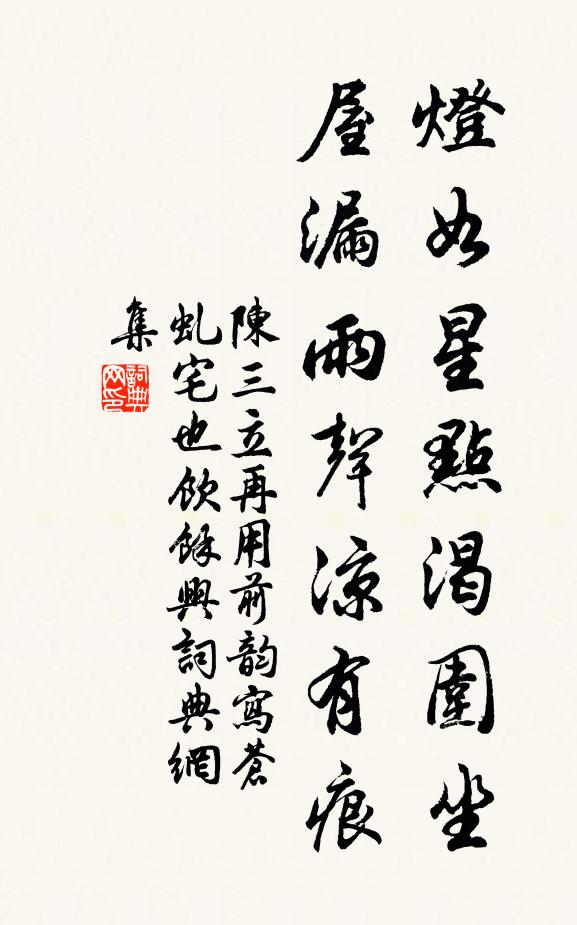 燈如星點渴圍坐
屋漏雨聲涼有痕
陳三立再用前韵寫蒼
虬宅也飲餘興詞典網
集
詞典
网印